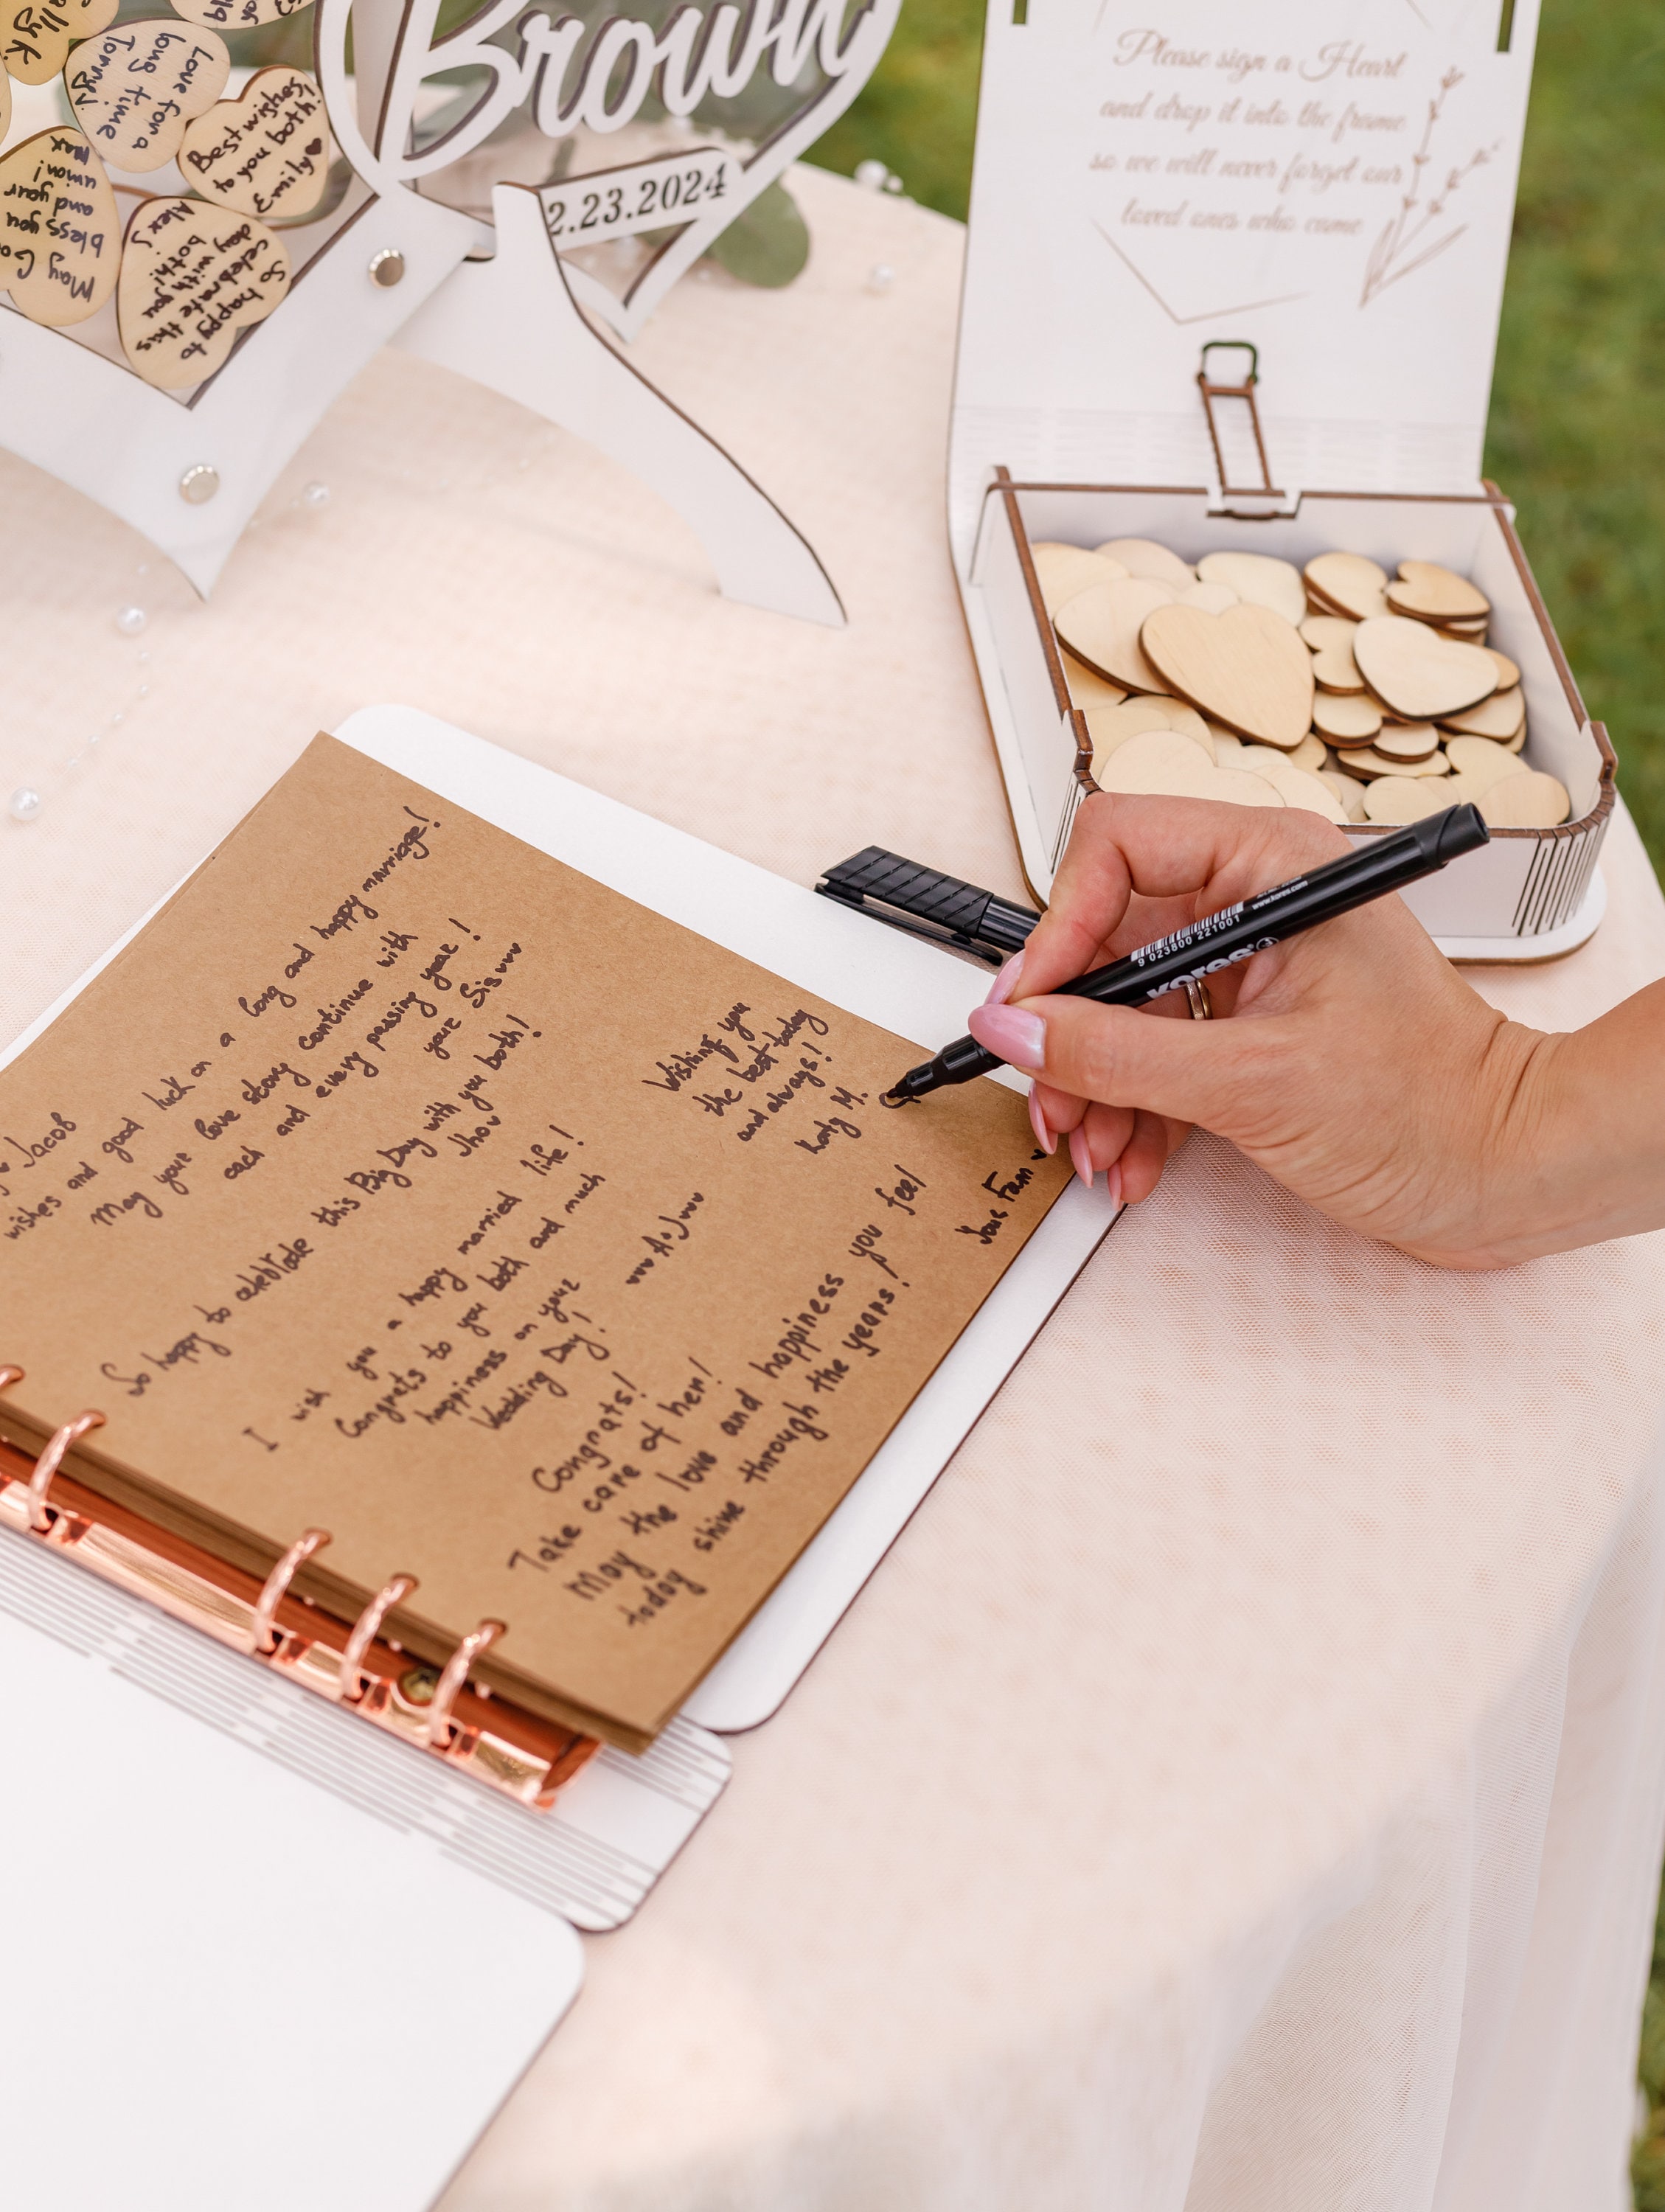 Brown
2.23.2024
Love for a
long time
Tommy!
Best wishes
to you both!
Emily
May Go
bless you
and your
union!
Max
So happy to
celebrate this
day with you
both!
Alex J
Please sign a Heart
and drop it into the frame
so we will never forget our
loved ones who came
Jacob
wishes and good luck on a long and happy marriage!
May your love story continue with
each and every passing year!
your Sis
So happy to celebrate this Big Day with you both!
Jho
I wish you a happy married life!
Congrats to you both and much
happiness on your
Wedding Day!
A+J
Wishing you
the best today
and always!
Katy M.
Congrats!
Take care of her!
May the love and happiness you feel
today shine through the years!
Your Fam
kores
www.kores.com
9 023800 221001